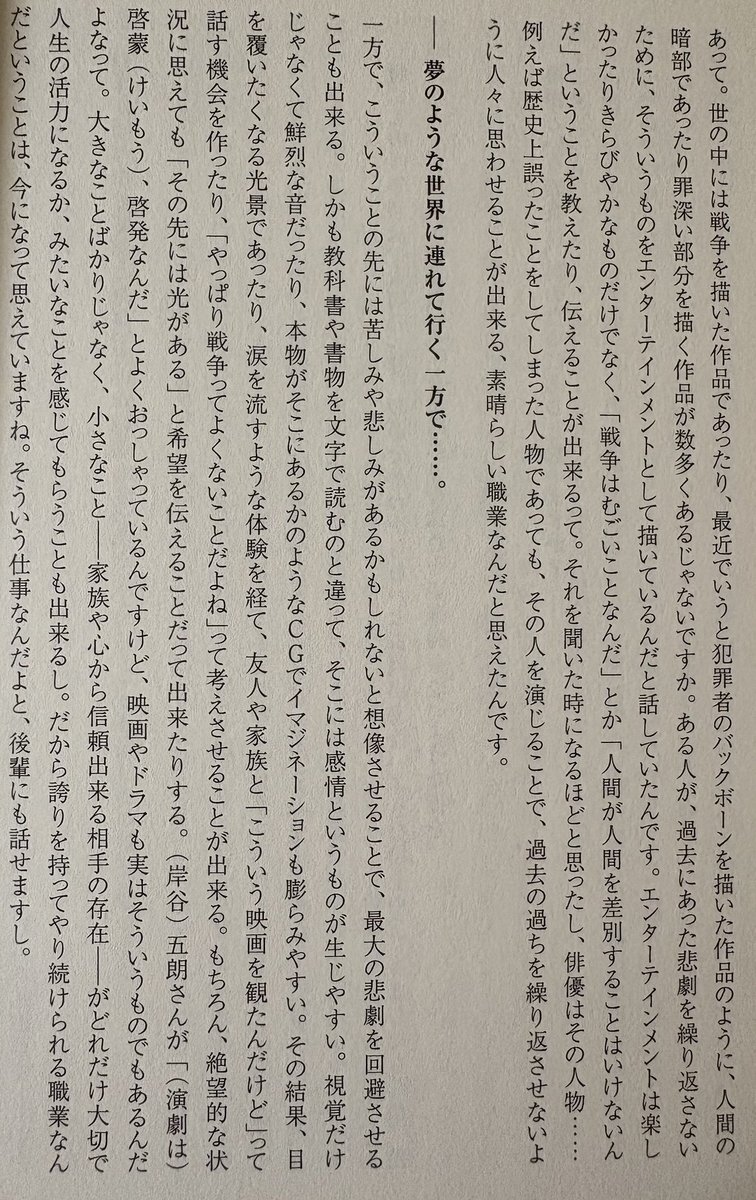 あって。世の中には戦争を描いた作品であったり、最近でいうと犯罪者のバックボーンを描いた作品のように、人間の
暗部であったり罪深い部分を描く作品が数多くあるじゃないですか。ある人が、過去にあった悲劇を繰り返さない
ために、そういうものをエンターテインメントとして描いているんだと話していたんです。エンターテインメントは楽し
かったりきらびやかなものだけでなく、「戦争はむごいことなんだ」とか「人間が人間を差別することはいけないん
だ」ということを教えたり、伝えることが出来るって。それを聞いた時になるほどと思ったし、俳優はその人物……
例えば歴史上誤ったことをしてしまった人物であっても、その人を演じることで、過去の過ちを繰り返させないよ
うに人々に思わせることが出来る、素晴らしい職業なんだと思えたんです。
── 夢のような世界に連れて行く一方で……。
一方で、こういうことの先には苦しみや悲しみがあるかもしれないと想像させることで、最大の悲劇を回避させる
ことも出来る。しかも教科書や書物を文字で読むのと違って、そこには感情というものが生じやすい。視覚だけ
じゃなくて鮮烈な音だったり、本物がそこにあるかのようなCGでイマジネーションも膨らみやすい。その結果、目
を覆いたくなる光景であったり、涙を流すような体験を経て、友人や家族と「こういう映画を観たんだけど」って
話す機会を作ったり、「やっぱり戦争ってよくないことだよね」って考えさせることが出来る。もちろん、絶望的な状
況に思えても「その先には光がある」と希望を伝えることだって出来たりする。（岸谷）五朗さんが「（演劇は）
啓蒙（けいもう）、啓発なんだ」とよくおっしゃっているんですけど、映画やドラマも実はそういうものでもあるんだ
よなって。大きなことばかりじゃなく、小さなこと──家族や心から信頼出来る相手の存在──がどれだけ大切で
人生の活力になるか、みたいなことを感じてもらうことも出来るし。だから誇りを持ってやり続けられる職業なん
だということは、今になって思えていますね。そういう仕事なんだよと、後輩にも話せますし。